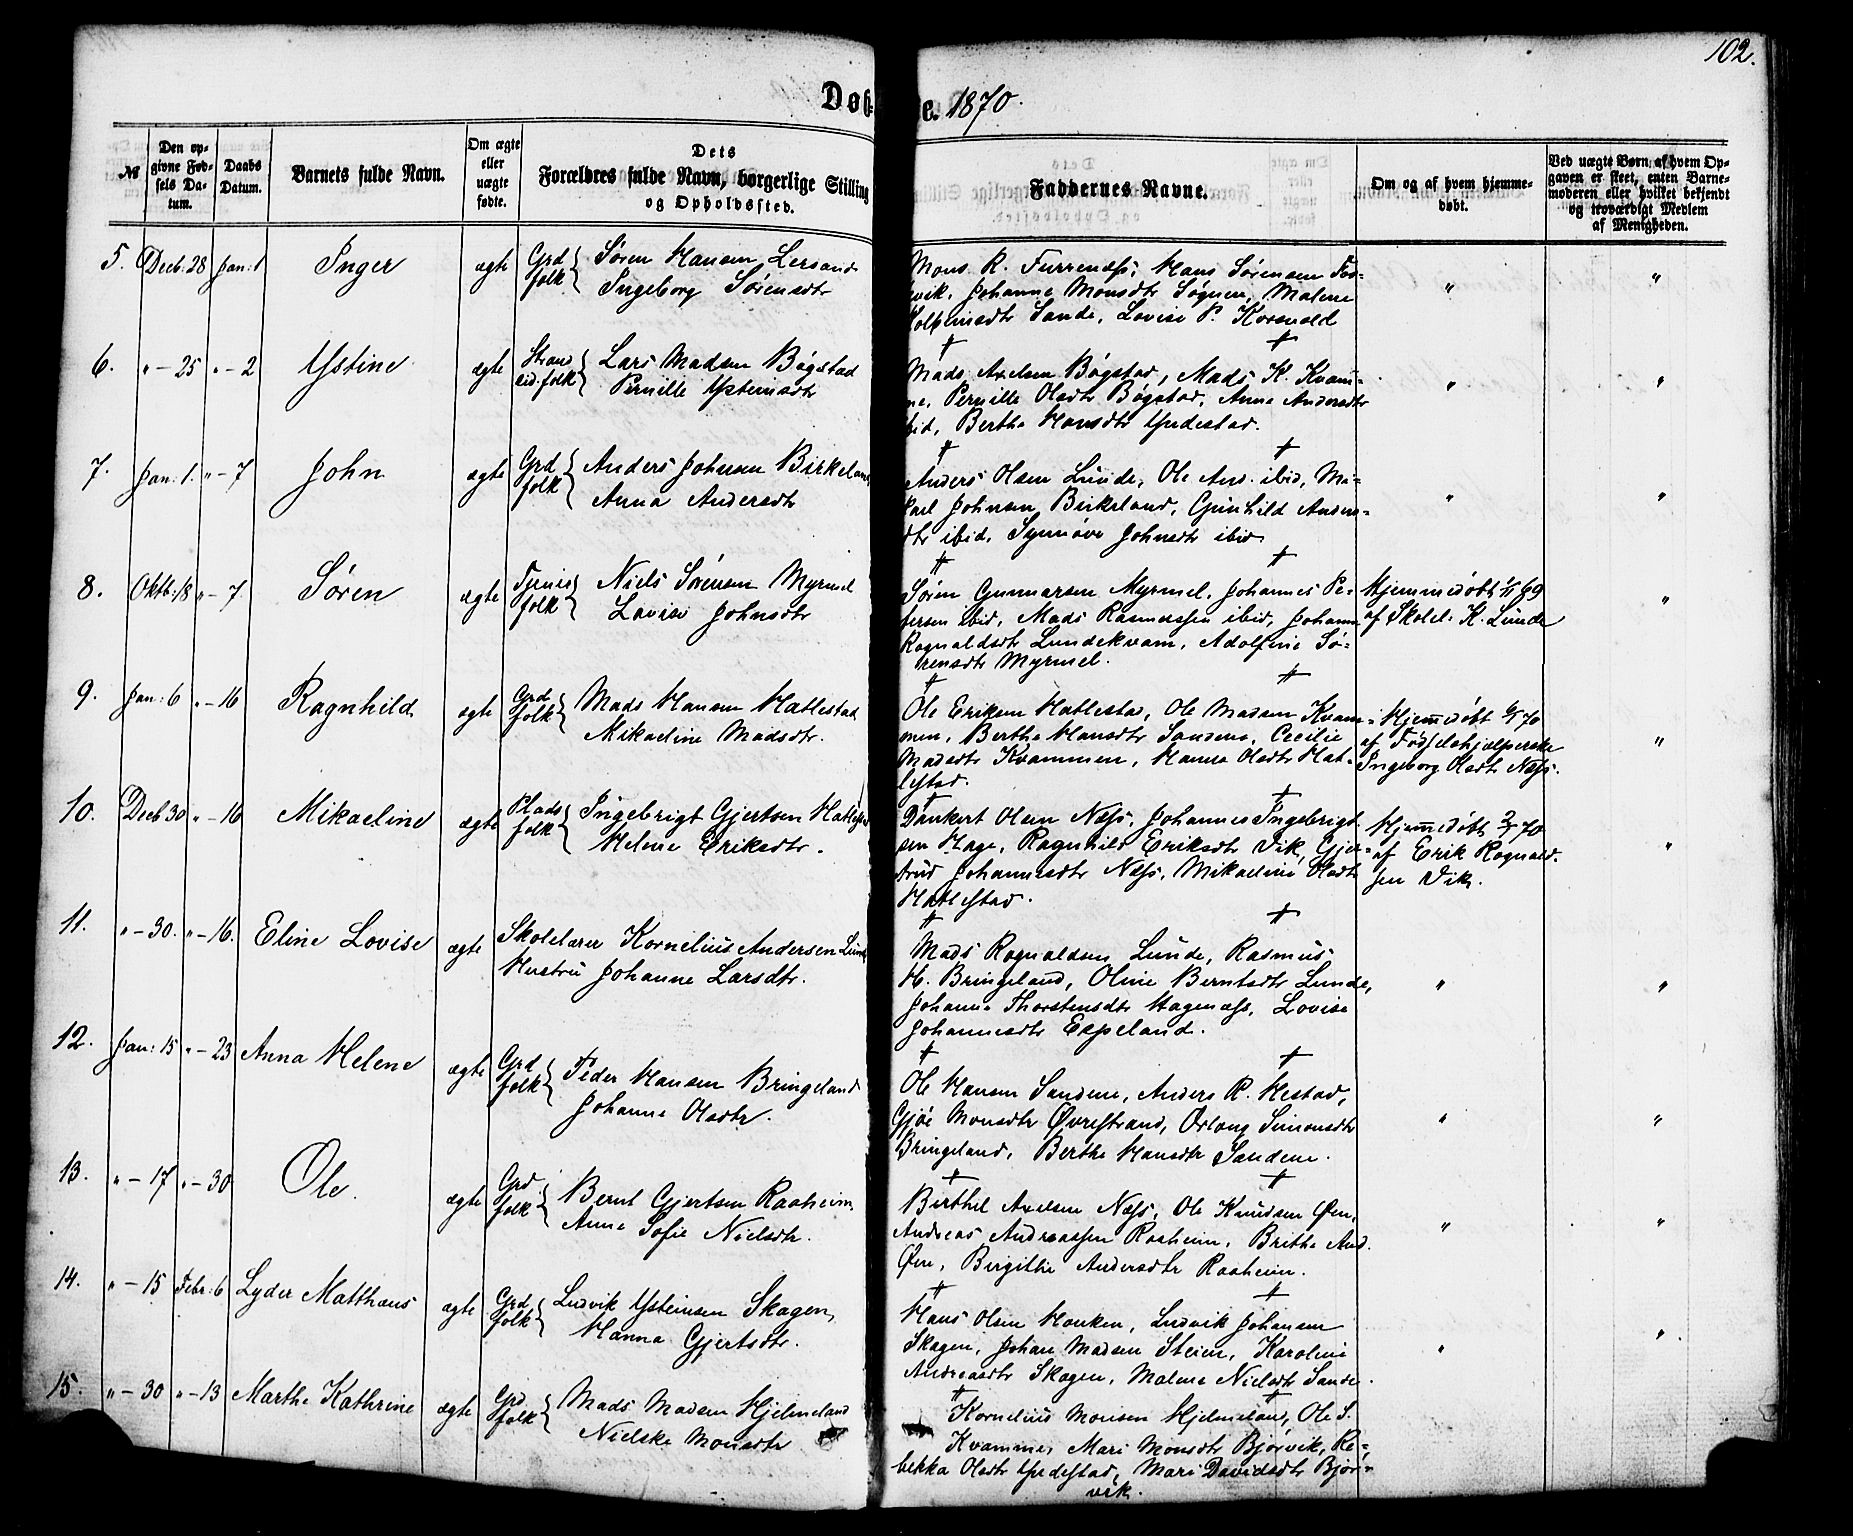 102.
Døb- e. 1870.
№
Den op-
givne Fød-
sels Da-
tum.
Daabs
Datum.
Barnets fulde Navn.
Om ægte
eller
uægte
fødte.
Dets
Forældres fulde Navn, borgerlige Stilling
og Opholdssted.
Faddernes Navne.
Om og af hvem hjemme-
døbt.
Ved uægte Børn, af hvem Op-
gaven er skeet, enten Barne-
moderen eller hvilket bekjendt
og troværdigt Medlem
af Menigheden.
5. Decb: 28 Jan: 1 Inger ægte Grd folk { Søren Hansen Lersand
Ingeborg Sørensdtr
Mons R. Furrenæss, Hans Sørensen
vik, Johanne Monsdtr Søgnen, Malene
Sande, Lovise P. Korsvold
" "
6. " - 25 " - 2 Ystine ægte Strand sid. folk { Lars Madsen Bøgstad
Pernille Ysteinsdtr
Mads Axelsen Bøgstad, Mads K. Kvam-
me, Pernille Olsdtr Bøgstad, Anne Andersdtr
ibid, Berthe Hansdtr Yndestad.
" "
7. Jan: 1. " - 7 John ægte Grd folk { Anders Johnsen Birkeland
Anna Andersdtr
Anders Olsen Lunde, Ole And. ibid, Mi-
kael Johnsen Birkeland, Gunhild Anders-
dtr ibid, Synnøve Johnsdtr ibid
" "
8. Oktb: 18 " - 7 Søren ægte Tjenis folk { Niels Sørensen Myrmel
Lovise Johnsdtr
Søren Gunnarsen Myrmel, Johannes Pe-
tersen ibid, Mads Rasmussen ibid, Johanne
Rognaldsdtr Lundekvam, Adolfine Sø-
rensdtr Myrmel.
Hjemmedøbt 69
af Skolel: K. Lunde
"
9. Jan: 6 " - 16 Ragnhild ægte Grd folk { Mads Hansen Hatlestad
Mikaeline Madsdtr.
Ole Eriksen Hatlestad, Ole Madsen Kvam-
men, Berthe Hansdtr Sandene, Cecilie
Madsdtr Kvammen, Hanna Olsdtr Hat-
lestad.
Hjemedøbt 6/1 70
af Fødselshjælperske
Ingeborg Olsdtr Næss.
"
10. Decb 30 " - 16 Mikaeline ægte Plads folk { Ingebrigt Gjertsen Hatlestad
Helene Eriksdtr.
Dankert Olsen Næss, Johannes Ingebrigt-
sen Hage, Ragnhild Eriksdtr Vik, Gjer-
trud Johannesdtr Næss, Mikaeline Olsdtr
Hatlestad.
Hjemedøbt 2/1 70
af Erik Rognald-
sen Vik.
"
11. " - 30. " - 16. Eline Lovise ægte Skolelærer Kornelius Andersen Lunde
Hustru Johanne Larsdtr.
Mads Rognaldsen Lunde, Rasmus
H. Bringeland, Oline Berntsdtr Lunde,
Johanne Thorstensdtr Hagenæss, Lovise
Johannesdtr Espeland.
" "
12. Jan: 15 " - 23 Anna Helene ægte Grd folk { Peder Hansen Bringeland
Johanne Olsdtr.
Ole Hansen Sandene, Anders R. Hestad,
Gjøe Monsdtr Øvrestrand, Orlong Simonsdtr
Bringeland, Berthe Hansdtr Sandene.
" "
13. " - 17 " - 30 Ole. ægte Grd folk { Bernt Gjertsen Raaheim.
Anne Sofie Nielsdtr.
Berthel Axelsen Næss, Ole Knudsen Øen,
Andreas Andreassen Raaheim, Brithe And.
Øen, Birgithe Andersdtr Raaheim.
" "
14. " - 15 Febr: 6 Lyder Matthæus ægte Grd folk { Ludvik Ysteinsen Skagen
Hanna Gjertsdtr.
Hans Olsen Hauken, Ludvik Johansen
Skagen, Johan Madsen Steien, Karoline
Andreasdtr Skagen, Malene Nielsdtr Sande.
" "
15. " - 30 " - 13 Marthe Kathrine ægte Grd folk { Mads Madsen Hjelmeland
Nielske Monsdtr
Kornelius Monsen Hjelmeland, Ole S.
Kvammen, Mari Monsdtr Bjørvik, Re-
bekka Olsdtr Yndestad, Mari Davidsdtr Bjør-
vik.